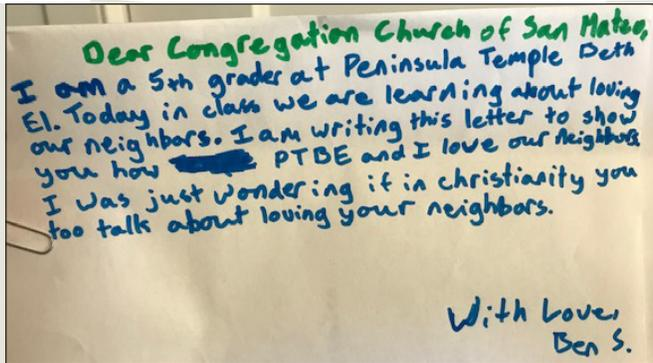 Dear Congregation Church of San Mateo,
I am a 5th grader at Peninsula Temple Beth
El. Today in class we are learning about loving
our neighbors. I am writing this letter to show
you how PTBE and I love our neighbors
I was just wondering if in christianity you
too talk about loving your neighbors.
With Love,
Ben S.